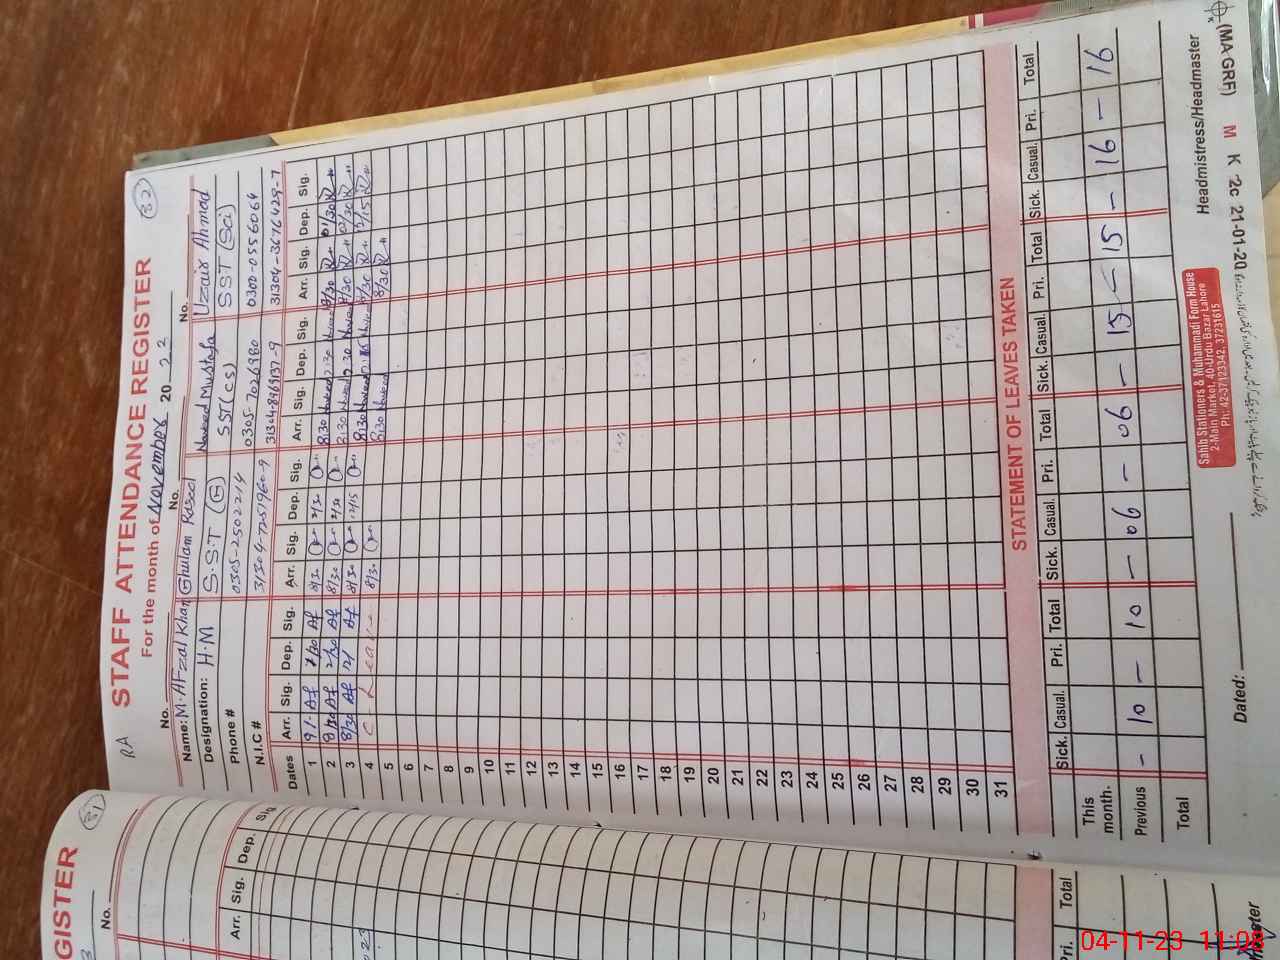 RA
STAFF ATTENDANCE REGISTER
32
For the month of November 20 22
No. No. No.
Name: M. AFzal Khan Ghulam Rasool Naveed Mustafa Uzair Ahmad
Designation: H.M S.S.T (G) SST (CS) SST (Sci)
Phone # 0305-2502214 0305-7026980 0300-0556064
N.I.C # 31304-7251960-9 31304-3676429-7
Dates Arr. Sig. Dep. Sig. Arr. Sig. Dep. Sig. Arr. Sig. Dep. Sig. Arr. Sig. Dep. Sig.
1 9/- Af 2/30 Af 8/30 2/30 8:30 Naveed 2:30 Naveed 8/30 2/30
2 8/30 Af 2/30 Af 8/30 2/30 8:30 Naveed 2:30 Naveed 8/30 2/30
3 8/30 Af 12/ Af 8/30 12/15 8:30 Naveed Naveed 8/30 12/15
4 C - Leave 8/30 8:30 Naveed 8/30
5
6
7
8
9
10
11
12
13
14
15
16
17
18
19
20
21
22
23
24
25
26
27
28
29
30
31
STATEMENT OF LEAVES TAKEN
Sick. Casual. Pri. Total Sick. Casual. Pri. Total Sick. Casual. Pri. Total Sick. Casual. Pri. Total
This month.
Previous - 10 - 10 - 06 - 06 - 15 - 15 - 16 - 16
Total
Dated:
Headmistress/Headmaster
Sahib Stationers & Muhammadi Form House
2-Main Market, 40-Urdu Bazar Lahore
Ph: 42-37123342, 37231615
(MA-GRF) M K 2c 21-01-20
GISTER
31
No.
Arr. Sig. Dep. Sig
Pri. Total
04-11-23 11:08